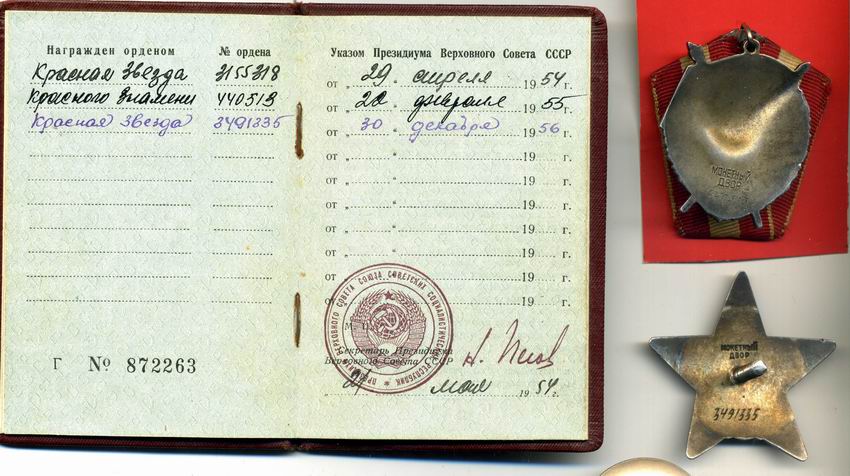 Награжден орденом
№ ордена
Красная Звезда 3155318
Красного Знамени 440513
Красная Звезда 3491335
Г № 872263
Указом Президиума Верховного Совета СССР
от „ 29 “ апреля 1954 г.
от „ “ февраля 1955 г.
от „ 30 “ декабря 1956 г.
от „ “ 19 г.
от „ “ 19 г.
от „ “ 19 г.
от „ “ 19 г.
от „ “ 19 г.
от „ “ 19 г.
от 19 г.
М. П.
Секретарь Президиума
Верховного Совета СССР
мая 1954 г.
МОНЕТНЫЙ
ДВОР
МОНЕТНЫЙ
ДВОР
3491335